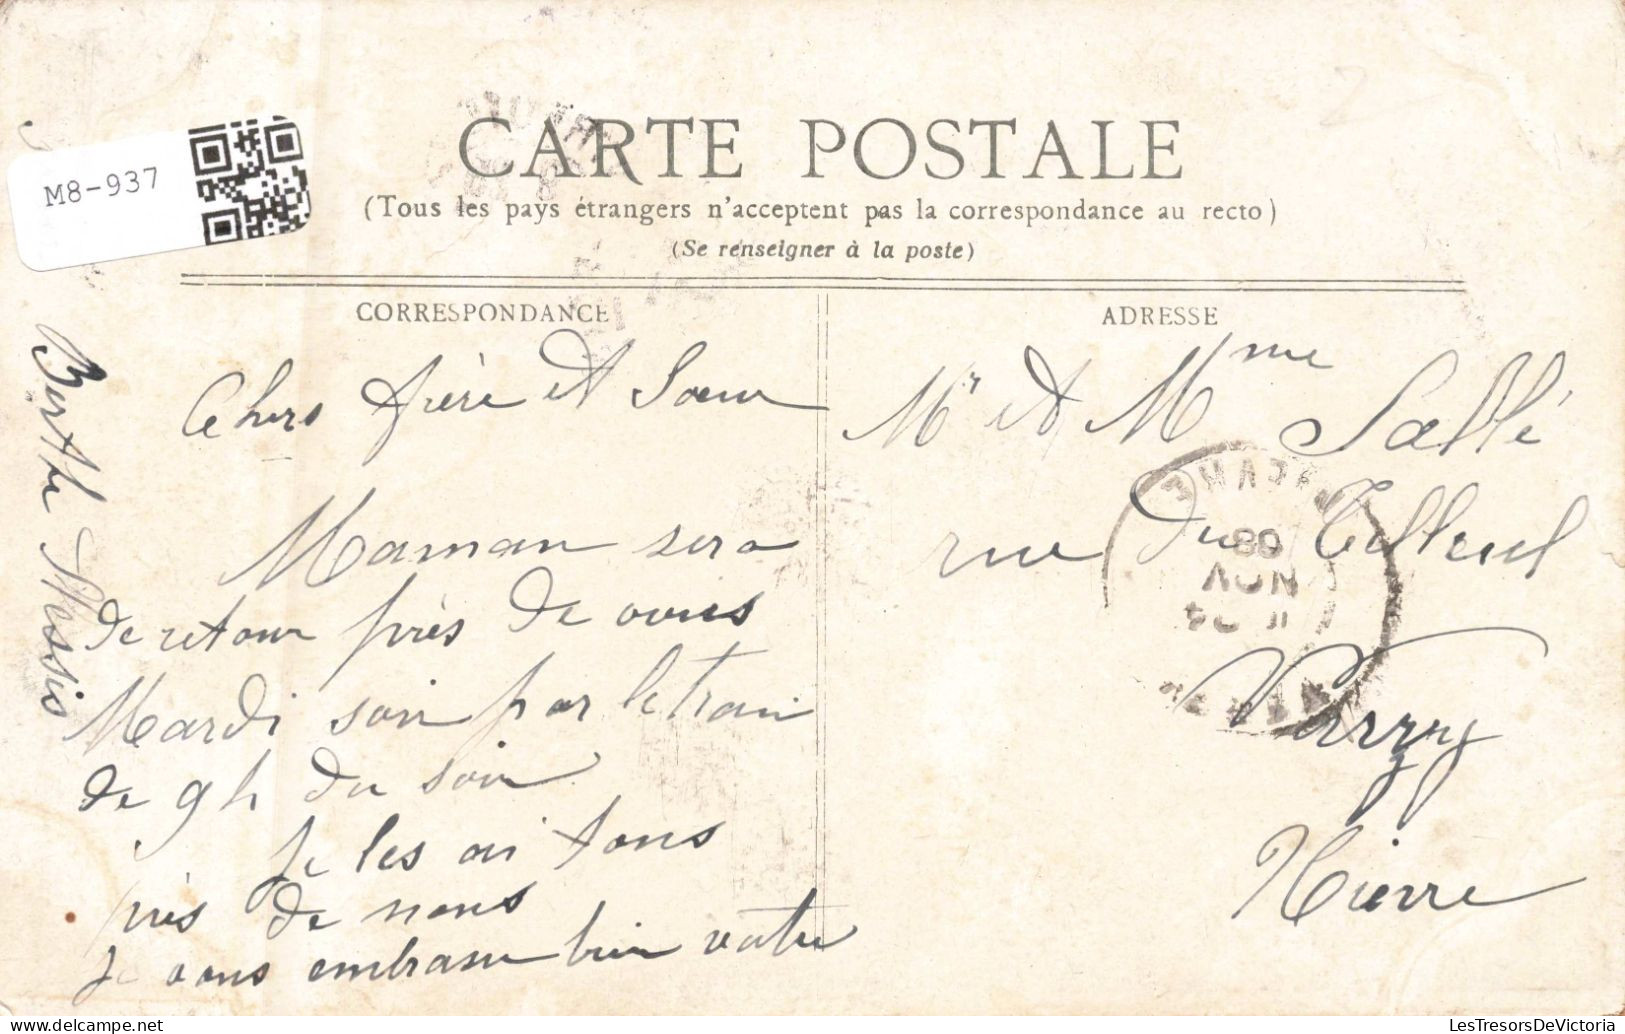 M8-937
CARTE POSTALE
(Tous les pays étrangers n'acceptent pas la correspondance au recto)
(Se renseigner à la poste)
CORRESPONDANCE
Chers frère et Sœur
Maman sera
de retour près de vous
Mardi soir par le train
de 9 h du soir
Je les ai tous
près de nous
Je vous embrasse bien votre
Berthe
ADRESSE
Mr et Mme Sallé
rue du Tilleul
Varzy
Nièvre
08
NOV
LesTresorsDeVictoria
https://www.delcampe.net